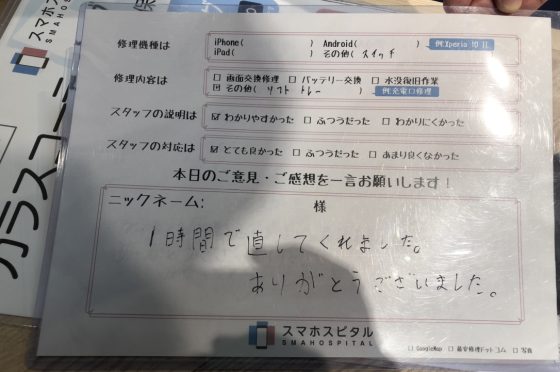 修理機種は
iPhone( ) Android( ) 例:Xperia 10 II
iPad( ) その他( スイッチ )
修理内容は
□ 画面交換修理 □ バッテリー交換 □ 水没復旧作業
☑ その他( ソフト トレー ) 例:充電口修理
スタッフの説明は
☑ わかりやすかった □ ふつうだった □ わかりにくかった
スタッフの対応は
☑ とても良かった □ ふつうだった □ あまり良くなかった
本日のご意見・ご感想を一言お願いします!
ニックネーム: 様
1時間で直してくれました。
ありがとうございました。
スマホスピタル
SMAHOSPITAL
□ GoogleMap □ 最安修理ドットコム □ 写真
スマホスピタル
SMAHOSPITAL
ガラスコーテ